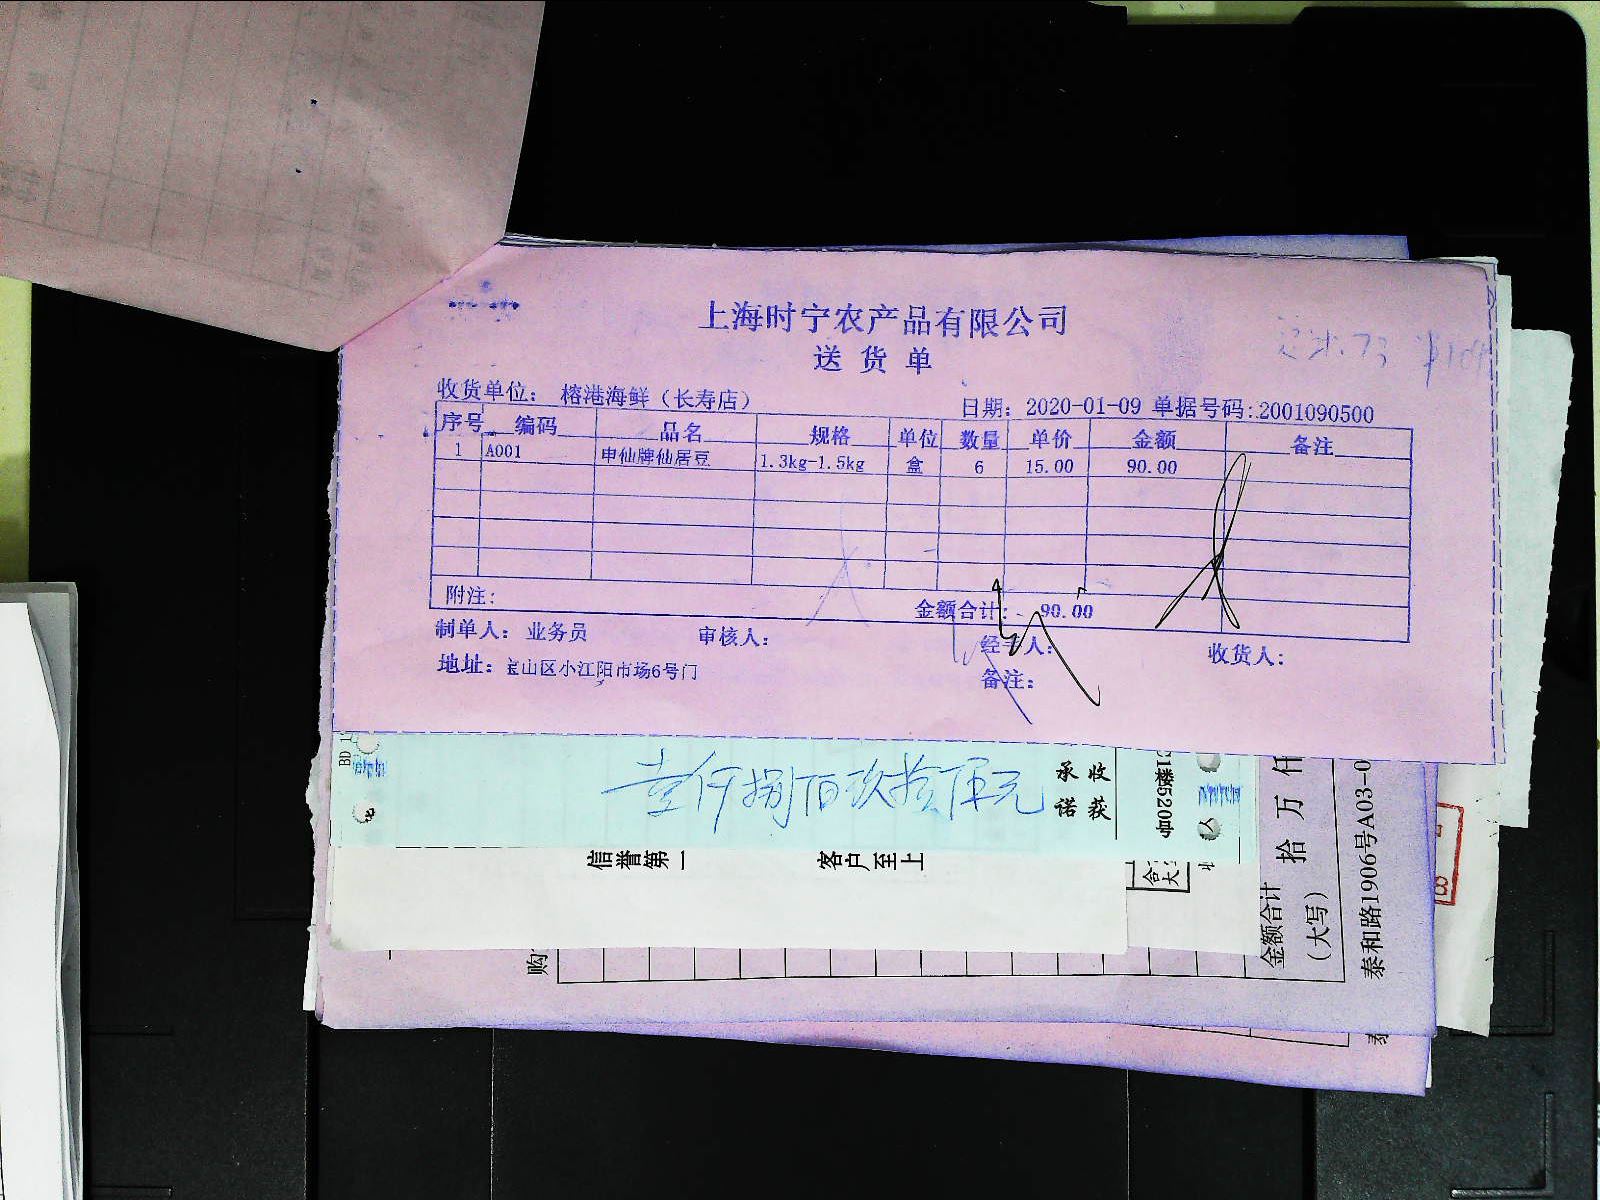 上海时宁农产品有限公司
送货单
收货单位： 榕港海鲜（长寿店）
日期： 2020-01-09 单据号码:2001090500
序号 编码 品名 规格 单位 数量 单价 金额 备注
1 A001 申仙牌仙居豆 1.3kg-1.5kg 盒 6 15.00 90.00
附注：
金额合计: 90.00
制单人： 业务员 审核人： 经手人： 收货人：
地址： 宝山区小江阳市场6号门
备注：
壹仟捌佰玖拾伍元
承诺
收获
信誉第一 客户至上
金额合计
（大写）
拾 万 仟
泰和路1906号A03-0
购